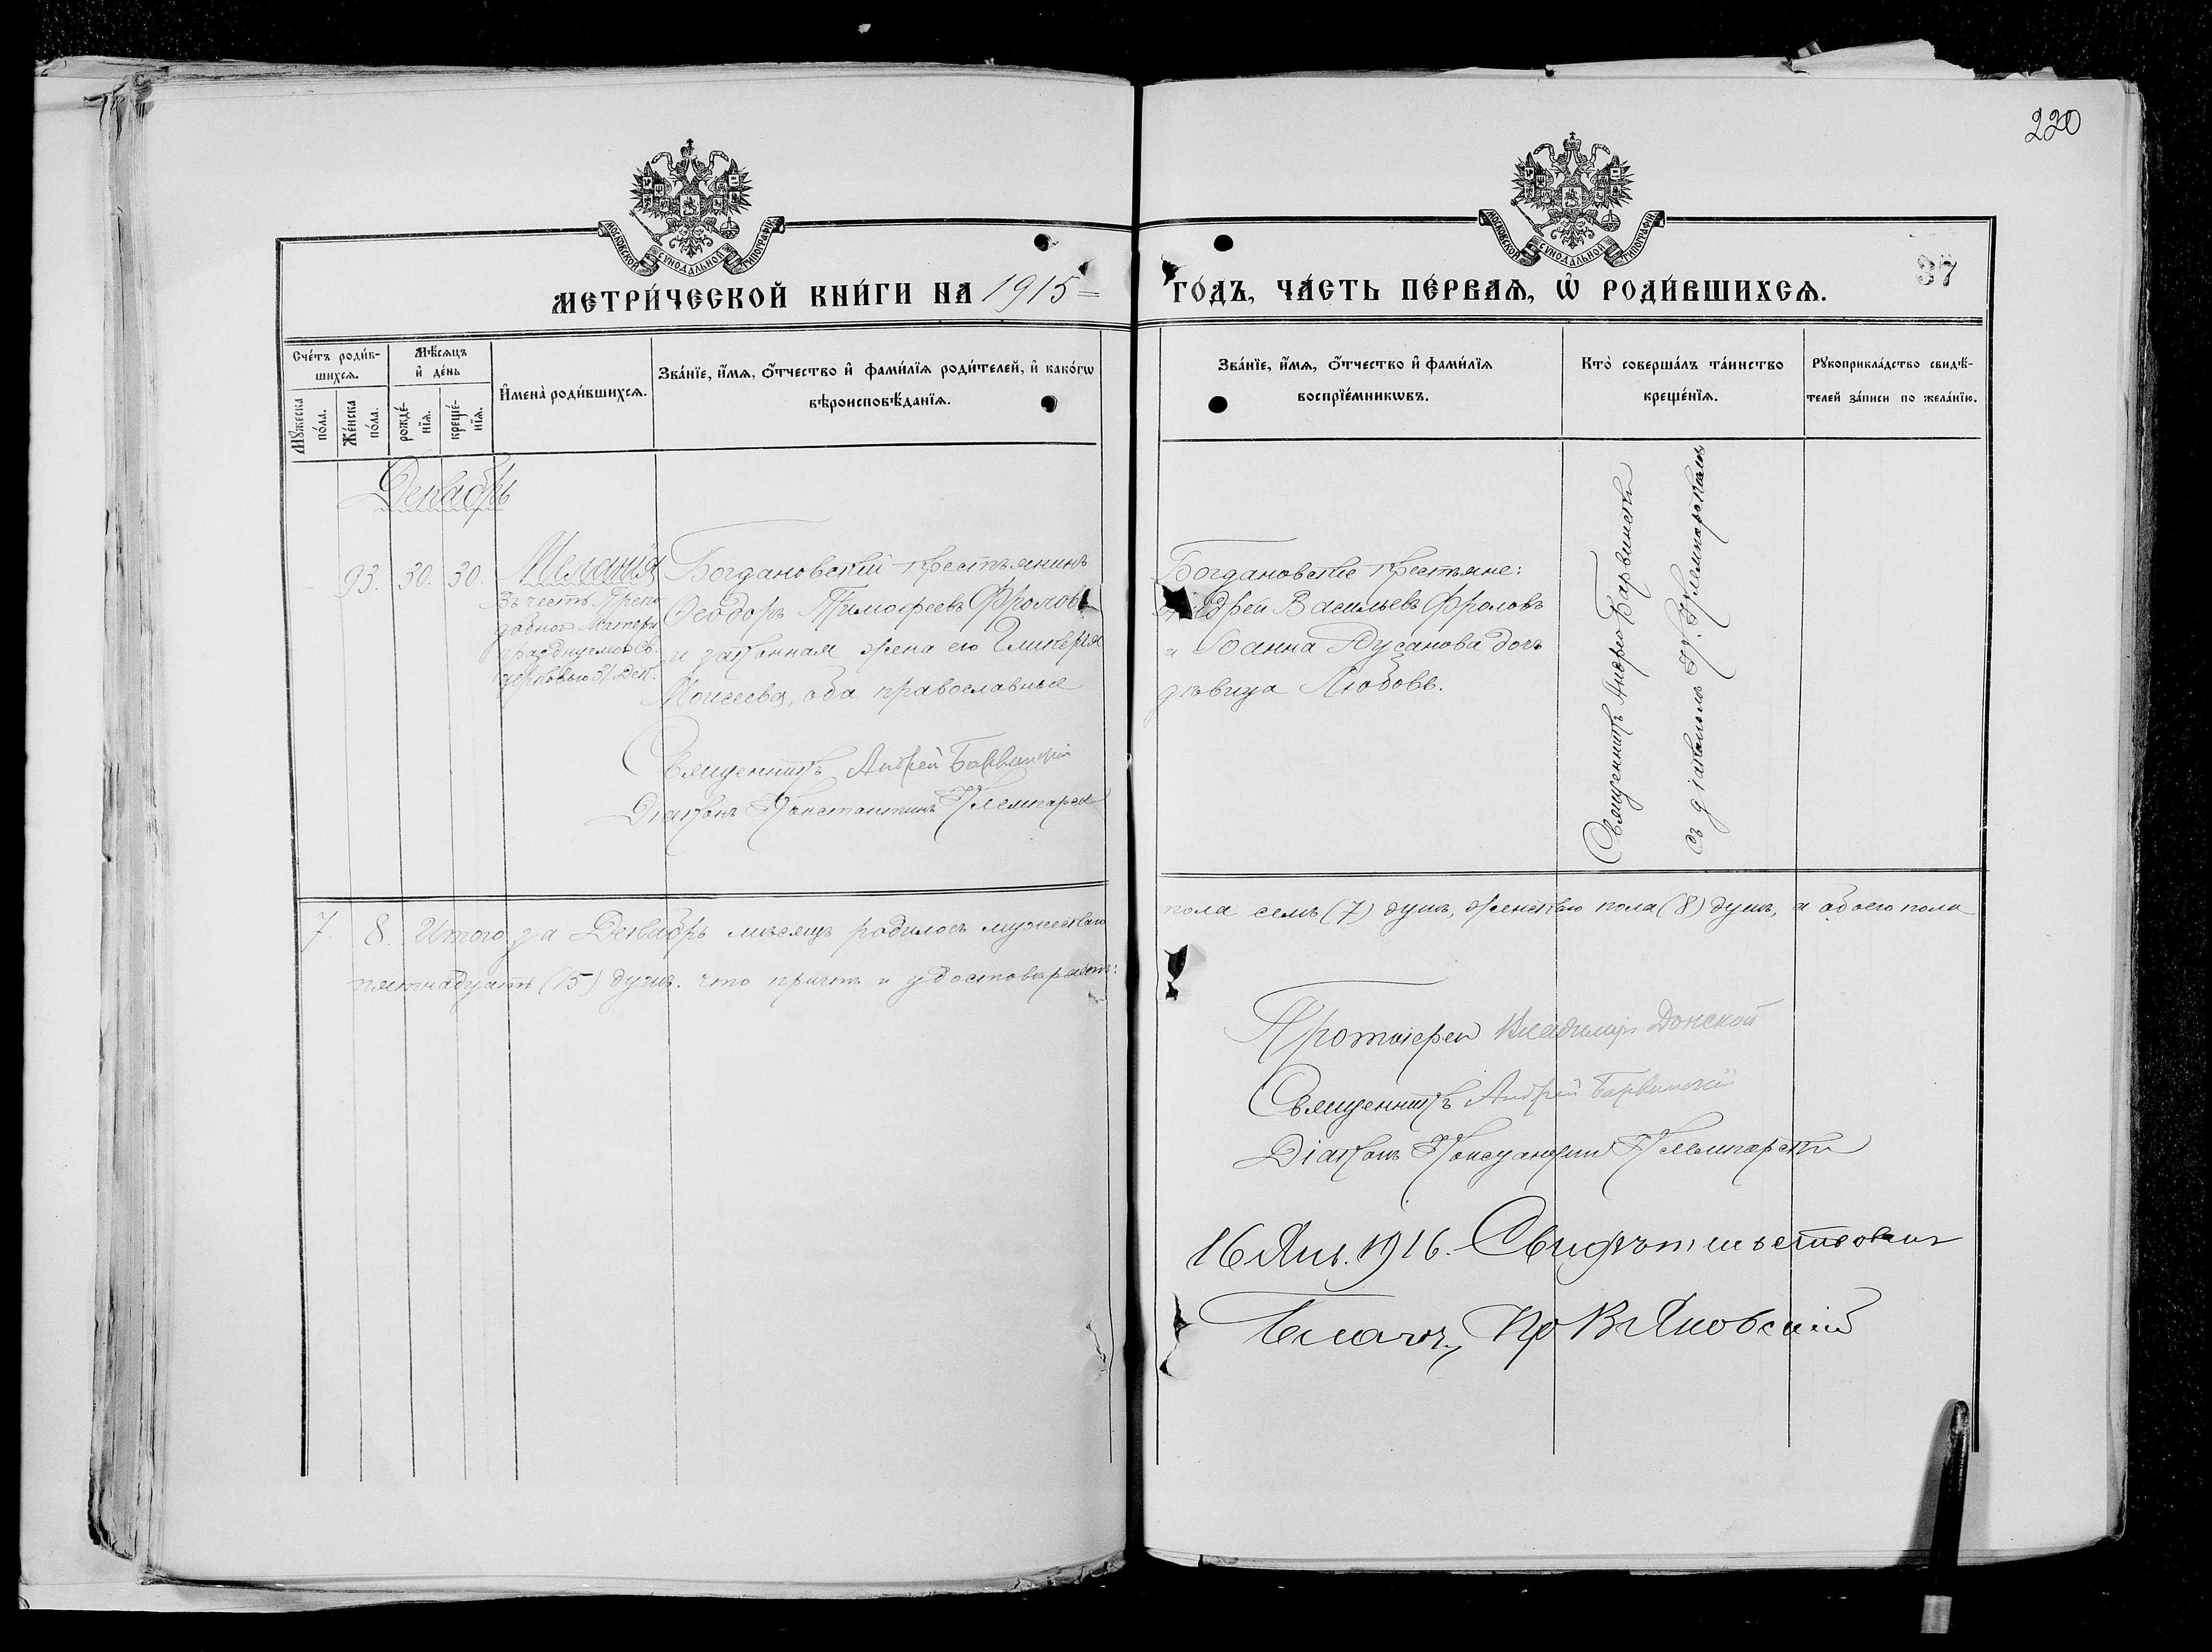 220
МОСКОВСКОЙ СѴНОДАЛЬНОЙ ТИПОГРАФІИ
МОСКОВСКОЙ СѴНОДАЛЬНОЙ ТИПОГРАФІИ
37
МЕТРИ́ЧЕСКОЙ КНИ́ГИ НА 1915 = ГО́ДЪ, ЧА́СТЬ ПЕ́РВАѦ, Ѡ҆ РОДИ́ВШИХСѦ.
Сче́тъ роди́в-
шихсѧ.
Мꙋ́жеска
по́ла.
Же́нска
по́ла.
Мѣ́сѧцъ
и҆ де́нь
рожде́-
нїѧ.
креще́-
нїѧ.
И҆мена̀ роди́вшихсѧ.
Зва́нїе, и҆́мѧ, ѻ҆́тчество и҆ фами́лїѧ роди́телей, и҆ како́гѡ
вѣроисповѣ́данїѧ.
Зва́нїе, и҆́мѧ, ѻ҆́тчество и҆ фами́лїѧ
воспрїе́мникѡвъ.
Кто̀ соверша́лъ та́инство
креще́нїѧ.
Рꙋкоприкла́дство свидѣ́-
телей за́писи по жела́нїю.
Декабрь
- 93. 30. 30.
Меланія
Въ честь Препо
добной Матери
празднуемой Св.
Церковью 31 Дек.
Богдановскій крестьянинъ
Ѳеодоръ Тимофеевъ Фроловъ
и законная жена его Гликерія
Моисеева, оба православные
Священникъ Андрей Барвинскій
Діаконъ Константинъ
Богдановскіе крестьяне:
Андрей Васильевъ Фроловъ
и дочь
дѣвица Любовь.
Священникъ Андрей Барвинскій
съ діакономъ К.
7. 8. Итого за Декабрь мѣсяцъ родилось мужескаго
пола семь (7) душъ, женскаго пола (8) душъ, а обоего пола
пятнадцать (15) душъ. что причтъ и удостовѣряетъ:
Протоіерей Владиміръ Донской
Священникъ Андрей Барвинскій
Діаконъ
16 Янв. 1916. Свидѣтельствовалъ
Благоч.